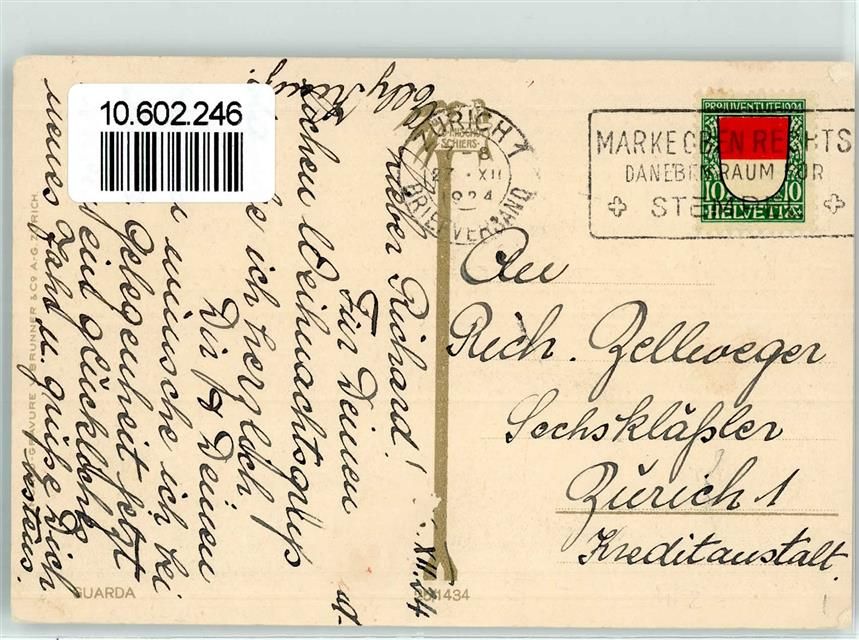 10.602.246
ZÜRICH 1
-8
27.XII
1924
BRIEFVERSAND
SCHIERS
MARKE OBEN RECHTS
DANEBEN RAUM FÜR
STEMPEL
PRO JUVENTUTE 1924
10 10
HELVETIA
An
Rich. Zellweger
Sechskläßler
Zürich 1
Kreditanstalt.
XII. 24
Lieber Richard!
Für Deinen
Weihnachtsgruss
ich herzlich
Dir & Deinen
wünsche ich bei
Gelegenheit jetzt
glückliches
neues Jahr u. grüße Dich
bestens.
GRAVURE BRUNNER & Co A.-G. ZÜRICH
GUARDA
1434